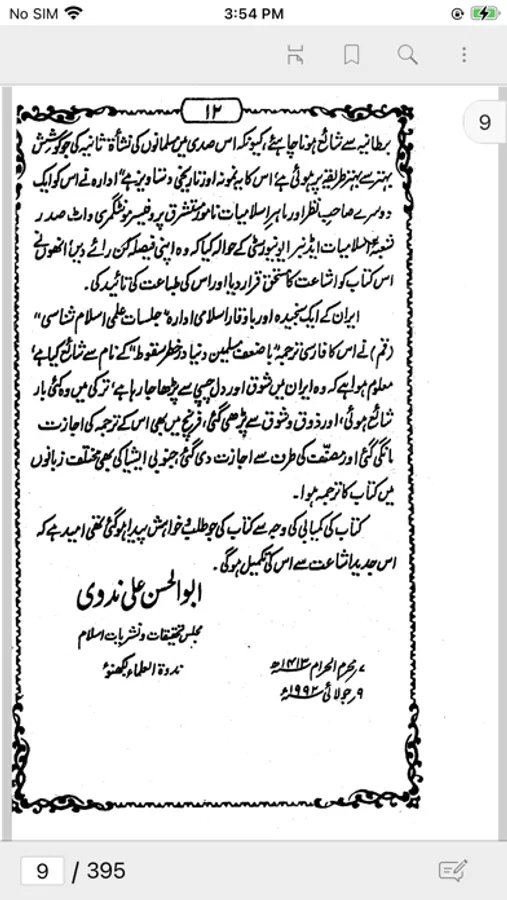 No SIM 3:54 PM
۱۲
9
برطانیہ سے شائع ہونا چاہئے، کیونکہ اس صدی میں مسلمانوں کی نشأۃ ثانیہ کی جو کوشش
بہتر سے بہتر طریقہ پر ہوئی ہے، اس کا یہ نمونہ اور تاریخی دستاویز ہے" ادارہ نے اس کو ایک
دوسرے صاحب نظر اور ماہر اسلامیات نامور مستشرق پروفیسر مونٹگمری واٹ صدر
شعبۂ اسلامیات ایڈنبرا یونیورسٹی کے حوالہ کیا کہ وہ اپنی فیصلہ کن رائے دیں، انھوں نے
اس کتاب کو اشاعت کا مستحق قرار دیا اور اس کی طباعت کی تائید کی۔
ایران کے ایک سنجیدہ اور باوقار اسلامی ادارہ "جلسات علمی اسلام شناسی"
(قم) نے اس کا فارسی ترجمہ "با ضعف مسلمین دنیا در خطر سقوط" کے نام سے شائع کیا ہے،
معلوم ہوا ہے کہ وہ ایران میں شوق اور دل چسپی سے پڑھا جا رہا ہے، ترکی میں وہ کئی بار
شائع ہوئی، اور ذوق و شوق سے پڑھی گئی، فرنچ میں بھی اس کے ترجمہ کی اجازت
مانگی گئی اور مصنّف کی طرف سے اجازت دی گئی، جنوبی ایشیا کی بھی مختلف زبانوں
میں کتاب کا ترجمہ ہوا۔
کتاب کی کمیابی کی وجہ سے کتاب کی جو طلب و خواہش پیدا ہوگئی تھی امید ہے کہ
اس جدید اشاعت سے اس کی تکمیل ہوگی۔
ابوالحسن علی ندوی
مجلس تحقیقات و نشریات اسلام
ندوۃ العلماء لکھنؤ
۷ محرم الحرام ۱۴۱۳ھ
۹ جولائی ۱۹۹۲ء
9 / 395